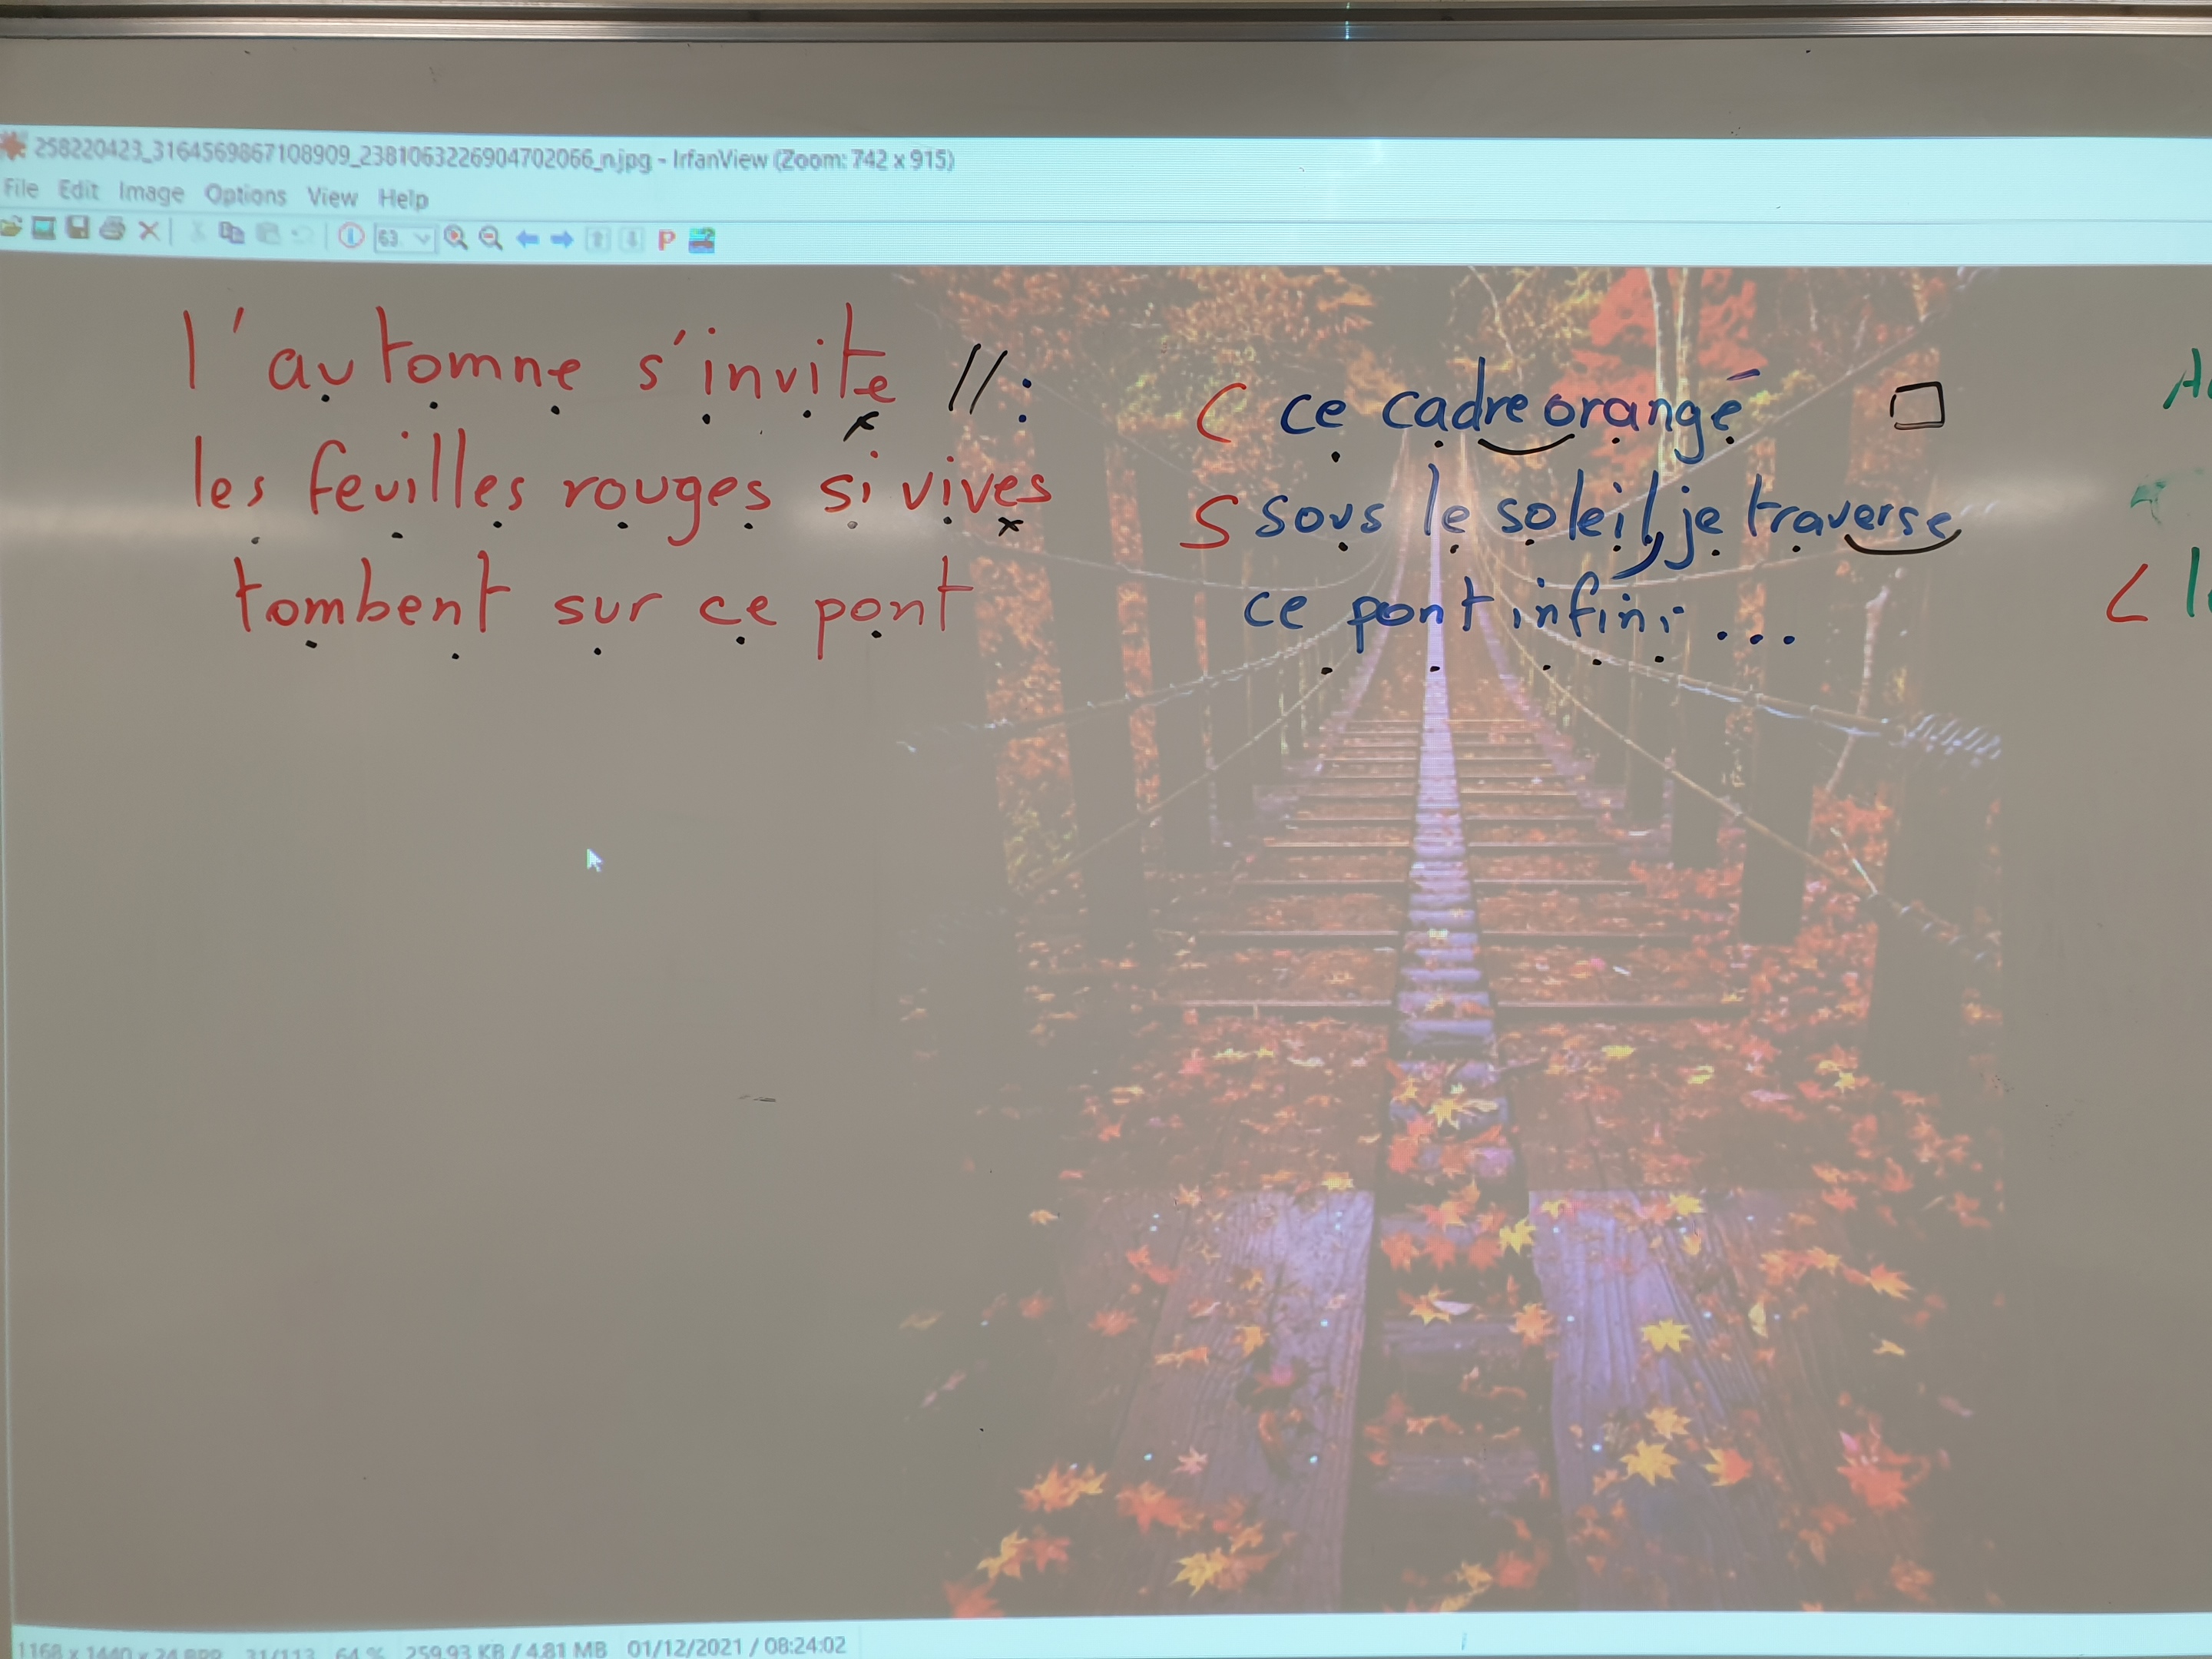 258220423_3164569867108909_2381063226904702066_n.jpg - IrfanView (Zoom: 742 x 915)
File Edit Image Options View Help
63
P
l'automne s'invite //:
les feuilles rouges si vives
tombent sur ce pont
C ce cadre orangé
S sous le soleil, je traverse
ce pont infini...
L
1168 x 1440 x 24 BPP 31/113 64 % 259.93 KB / 4.81 MB 01/12/2021 / 08:24:02